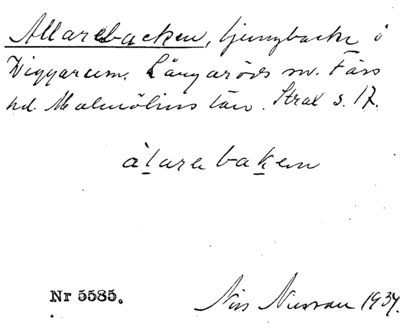 Allarebacken, ljungbacke å
Viggarum, Långaröds sn. Färs
hd. Malmöhus län. Strax s. 17.
àlarebakem
Nr 5585.
Nils 1934.